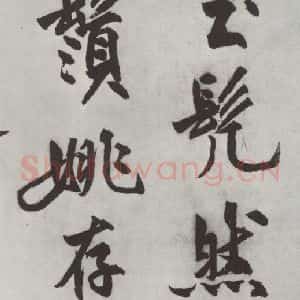 髡然
姚存
Shufawang.CN